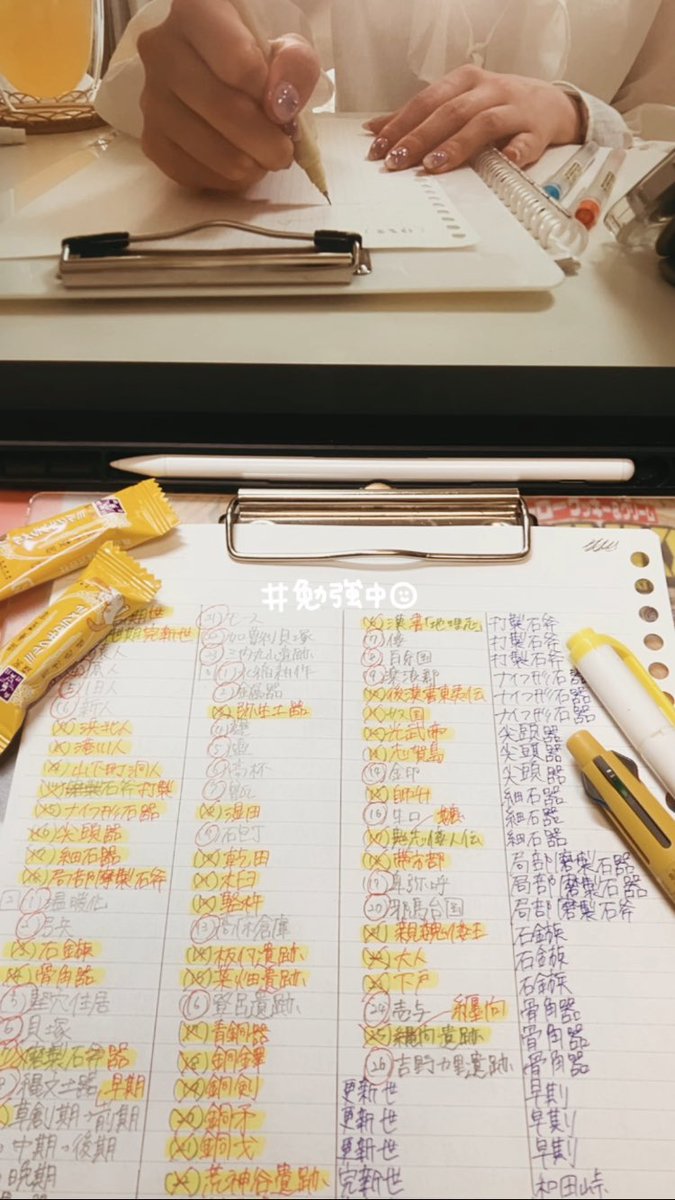 #勉強中☺
完新世
(3) 原人
(5) 旧人
(6) 新人
(×) 浜北人
(×) 港川人
(×) 山下町洞人
打製
(×5) ナイフ形石器
(×6) 尖頭器
(×7) 細石器
(×8) 局部磨製石斧
2 (1) 温暖化
(2) 弓矢
(×3) 石鏃
(×4) 骨角器
(5) 竪穴住居
(6) 貝塚
磨製石斧 器
縄文土器 早期
草創期→前期
中期→後期
晩期
加曽利貝塚
三内丸山遺跡
(1) 水稲耕作
(×) 弥生土器
(4) 甕
(5) 壺
(6) 高杯
(7) 甑
(×8) 湿田
(9) 石包丁
(×) 乾田
(×) 木臼
(×) 竪杵
(13) 高床倉庫
(×) 板付遺跡
(×) 菜畑遺跡
(16) 登呂遺跡
(×) 青銅器
(×8) 銅鐸
(×) 銅剣
(×) 銅矛
(×) 銅戈
(×) 荒神谷遺跡
(×6) 漢書「地理志」
(7) 倭
(8) 百余国
(9) 楽浪郡
(×) 後漢書東夷伝
(×) 奴国
(×) 光武帝
(×) 志賀島
(14) 金印
(×) 帥升
(16) 生口
(×) 魏志倭人伝
(×) 帯方郡
(19) 卑弥呼
(20) 邪馬台国
(×) 親魏倭王
(×) 大人
(×) 下戸
(24) 壱与
纒向
(×5) 纒向遺跡
(26) 吉野ヶ里遺跡
更新世
更新世
更新世
完新世
打製石斧
打製石斧
打製石斧
ナイフ形石器
ナイフ形石器
ナイフ形石器
尖頭器
尖頭器
尖頭器
細石器
細石器
細石器
局部磨製石器
局部磨製石器
局部磨製石斧
石鏃
石鏃
石鏃
骨角器
骨角器
骨角器
早期
早期
早期
和田峠